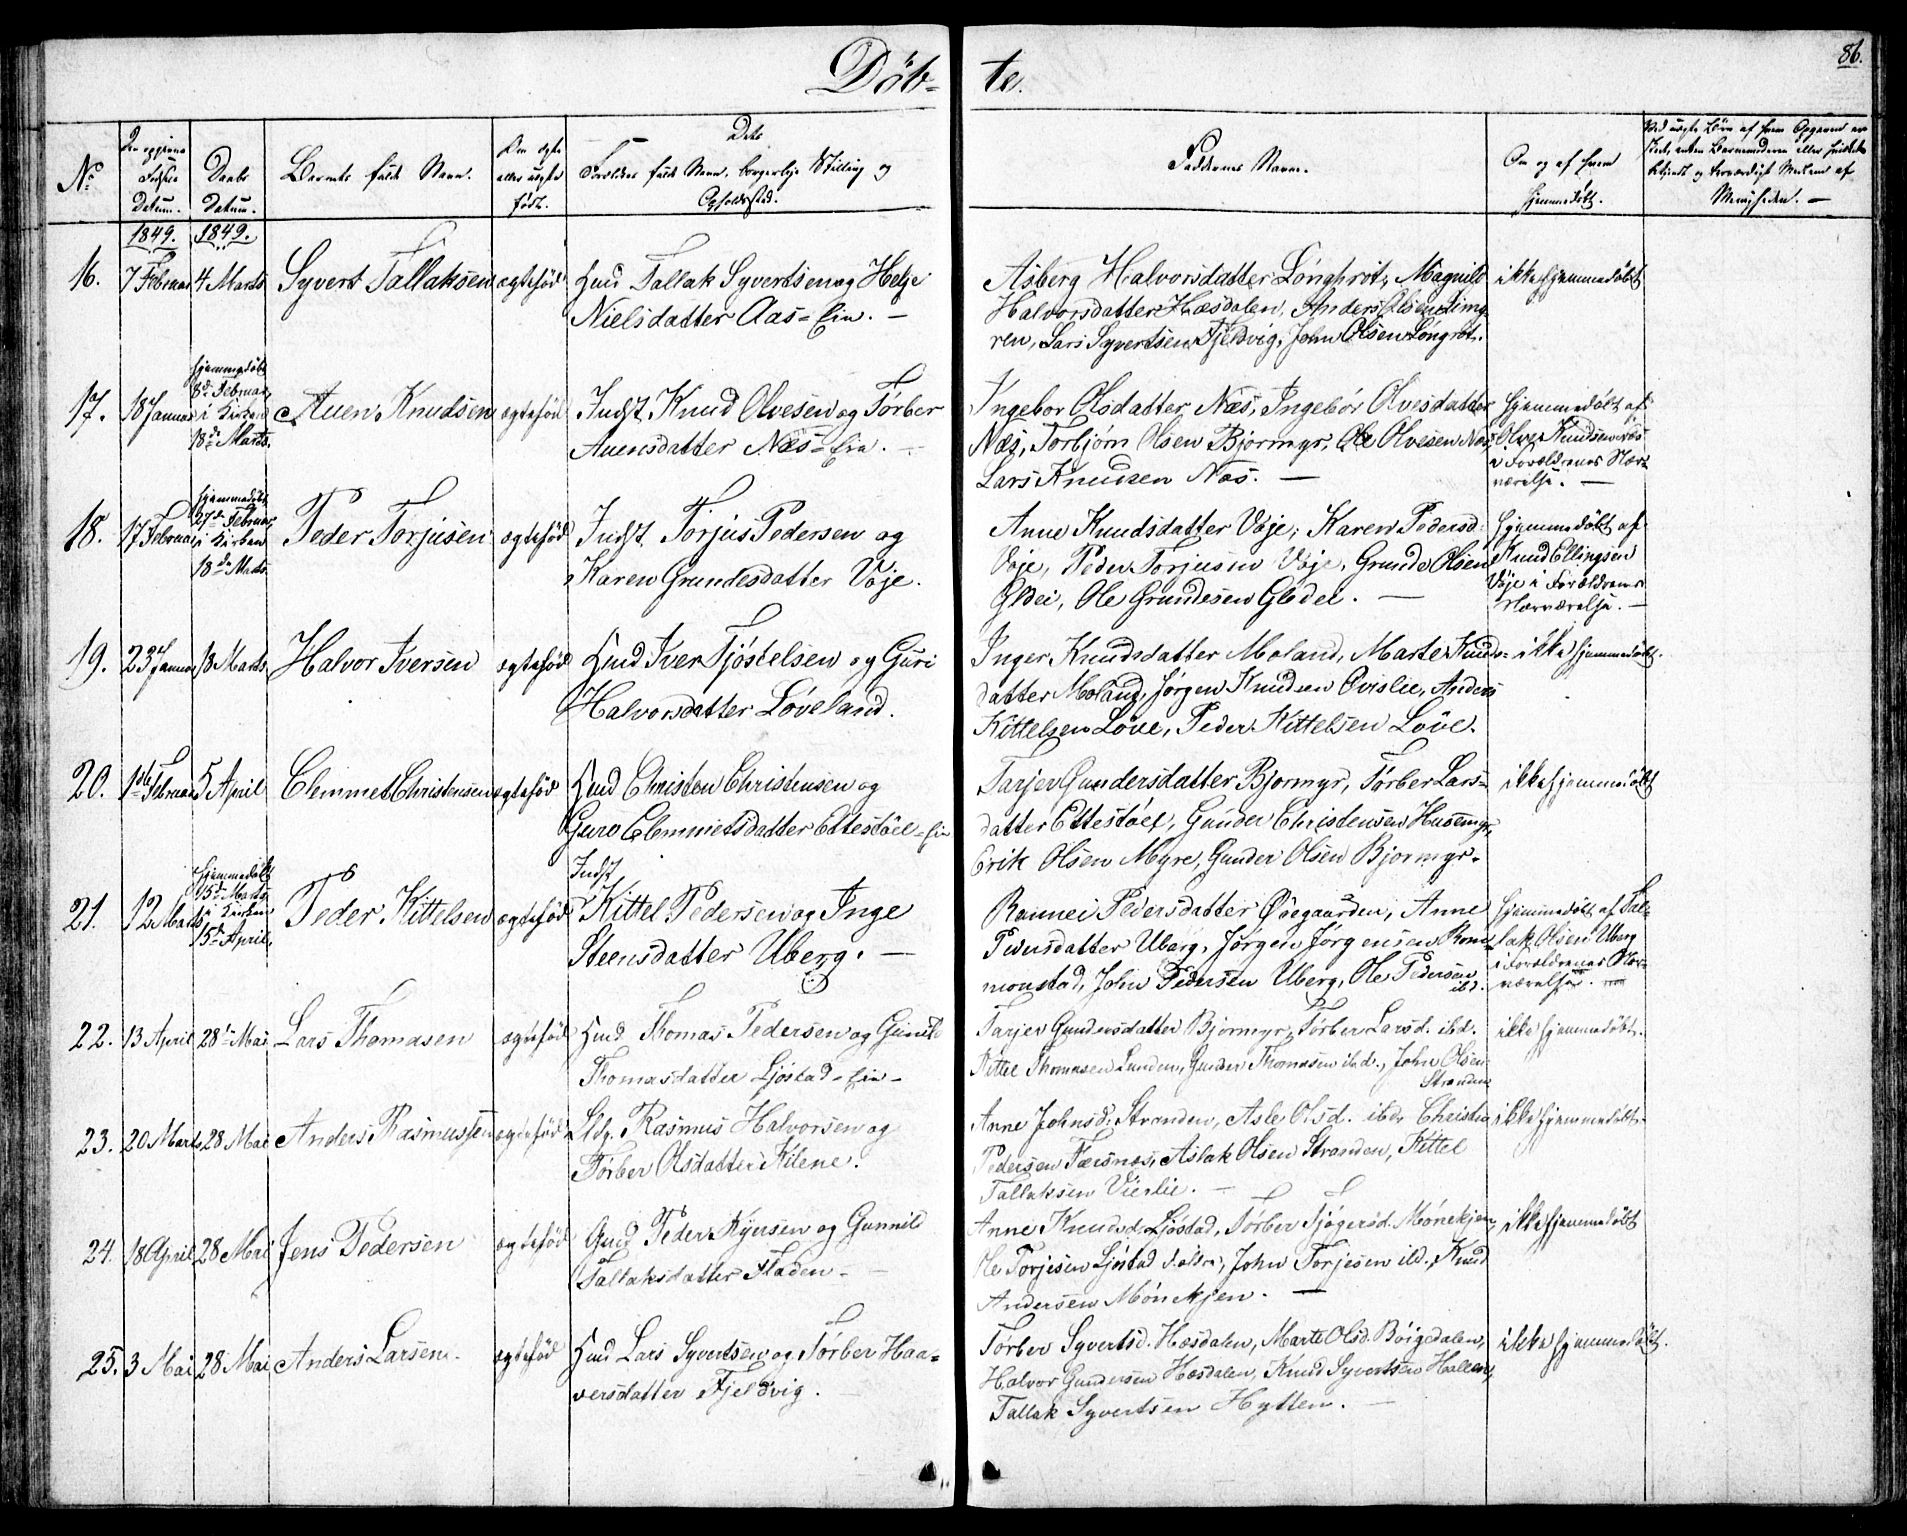 Døb-
te.
86.
No
Den opgivne Fødsels Datum.
Daabs Datum.
Barnets fulde Navn.
Om ægte eller uægte født.
Dets Forældres fulde Navn, borgerlige Stilling og Opholdssted.
Faddernes Navne.
Om og af hvem hjemmedøbt.
Menigheden. —
1849. 1849.
16. 7 Februar 4 Marts Syvert Tallaksen ægtefød Hmd Tallak Syvertsen og Helje
Nielsdatter Aas - Eie. —
Asberg Halvorsdatter Longhrot, Magnild
Halvorsdatter Hæsdalen, Anders Olsen
ren, Lars Syvertsen Fjeldvig, John Olsen Longrot.
ikke hjemmedøbt
17. 18 Januar
hjemmedøbt
8de Februar
i Kirken
18de Marts.
Auen Knudsen ægtefød Indst. Knud Olvesen og Torber
Auensdatter Næs - Eie. —
Ingebor Olsdatter Næs, Ingebór Olvesdatter
Næs, Torbjørn Olsen Bjormyr, Ole Olvesen Næs,
Lars Knudsen Næs. —
Hjemmedøbt af
Olve Knudsen Næs
i Forældrenes Nær-
værelse. —
18. 17 Februar
hjemmedøbt
27de Februar
i Kirken
18de Marts.
Peder Torjusen ægtefød Indst. Torjus Pedersen og
Karen Grundesdatter Vøje.
Anne Knudsdatter Vøje, Karen Pedersd.
Vøje, Peder Torjusen Vøje, Grunde Olsen
Gldei, Ole Grundesen Gledei. —
Hjemmedøbt af
Knud Ellingsen
Vøje i Forældrenes
Nærværelse. —
19. 23 Januar 18 Marts Halvor Iversen ægtefød Hmd Iver Tjóstelsen og Guri
Halvorsdatter Lóveland.
Inger Knudsdatter Moland, Marte Knuds-
datter Moland, Jørgen Knudsen Qvislie, Anders
Kittelsen Löve, Peder Kittelsen Löve.
ikke hjemmedøbt.
20. 1ste Februar 5 April Clemmet Christensen ægtefød Hmd Christen Christensen og
Guro Clemmetsdatter Ettestöel - Eie
Tarjer Gundersdatter Bjormyr, Torber Lars-
datter Ettestöel, Gunder Christensen Husemyr,
Erik Olsen Myre, Gunder Olsen Bjormyr.
ikke hjemmedøbt
21. 12 Marts
Hjemmedøbt
15de Marts
i Kirken
15de April.
Peder Kittelsen ægtefød
Indst.
Kittel Pedersen og Inge
Steensdatter Uberg. —
Rannei Pedersdatter Øiegaarden, Anne
Pedersdatter Uberg, Jørgen Jørgensen Rom-
monstad, John Pedersen Uberg, Ole Pedersen
ibd.
Hjemmedøbt af Tal-
lak Olsen Uberg
i Forældrenes Nær-
værelse. —
22. 13 April 28de Mai Lars Thomasen ægtefød Hmd Thomas Pedersen og Gunild
Thomasdatter Ljøstad - Eie -
Tarjer Gundersdatter Bjormyr, Torber Larsd. ibd.
Kittel Thomasen Lunden, Gunder Thomasen ibd., John Olsen
Stranden
ikke hjemmedøbt.
23. 20 Marts 28 Mai Anders Rasmussen ægtefød Rasmus Halvorsen og
Torber Olsdatter Kilene.
Anne Johnsd. Stranden, Asle Olsd. ibd., Christen
Pedersen Fæesnæs, Aslak Olsen Stranden, Kittel
Tallaksen Vierlie. —
ikke hjemmedøbt.
24. 18 April 28 Mai Jens Pedersen ægtefød Peder Kyersen og Gunnild
Tallaksdatter Fladen. —
Anne Knudsd. Ljøstad, Torber Tjøgersd. Mónekjen,
Ole Torjesen Ljøstad d. ældre, John Torjesen ibd., Knud
Andersen Mónekjen. —
ikke hjemmedøbt
25. 3 Mai 28 Mai Anders Larsen. ægtefød Hmd Lars Syvertsen og Torber Haa-
versdatter Fjeldvig.
Torber Syvertsd. Hæsdalen, Marte Olsd. Böigedalen,
Halvor Gundersen Hæsdalen, Knud Syvertsen Hallen,
Tallak Syvertsen Hytten. —
ikke hjemmedøbt.